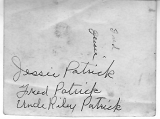 Jessie Patrick
Fred Patrick
Uncle Riley Patrick